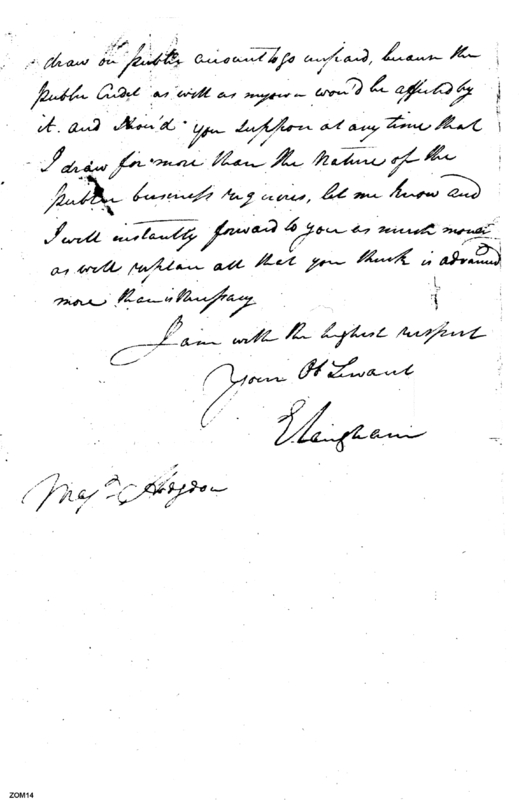 draw on public account to go unpaid, because the
public Credit as well as my own wou'd be affected by
it. and shou'd you suppose at any time that
I draw for more than the nature of the
public business requires, let me know and
I will instantly forward to you as much money
as will replace all that you think is advanced
more than is necessary
I am with the highest respect
Your Ob Servant
E Langham
Majr Hodgdon
ZOM14